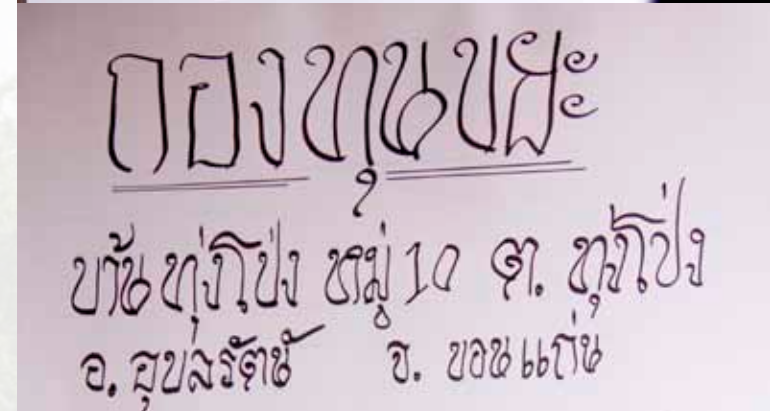 กองทุนขยะ
บ้านทุ่งโป่ง หมู่ 10 ต. ทุ่งโป่ง
อ. อุบลรัตน์ จ. ขอนแก่น